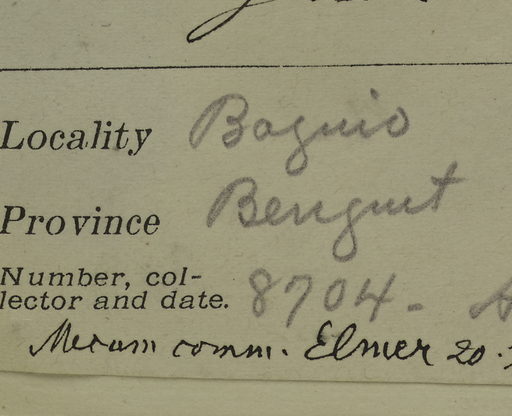 Locality Baguio
Province Benguet
Number, col-
lector and date. 8704.
comm. Elmer 20.